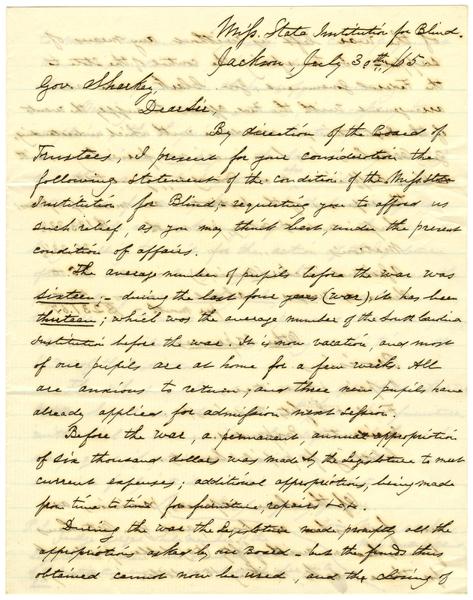 Miss. State Institution for Blind.
Jackson, July 30th, /65
Gov. Sharkey,
Dear Sir,
By direction of the Board of
Trustees, I present for your consideration the
following statement of the condition of the Miss. State
Institution for Blind,- requesting you to afford us
such relief, as you may think best, under the present
condition of affairs.
The average number of pupils before the war was
sixteen;- during the last four years (war), it has been
thirteen; which was the average number of the South Carolina
Institution before the war. It is now vacation, and most
of our pupils are at home for a few weeks. All
are anxious to return, and three new pupils have
already applied for admission next session.
Before the war, a permanent, annual appropriation
of six thousand dollars was made by the Legislature to meet
current expenses; additional appropriations, being made
from time to time for furniture, repairs &c.
During the war the Legislature made promptly all the
appropriations asked by our Board - but the funds thus
obtained cannot now be used, and the closing of